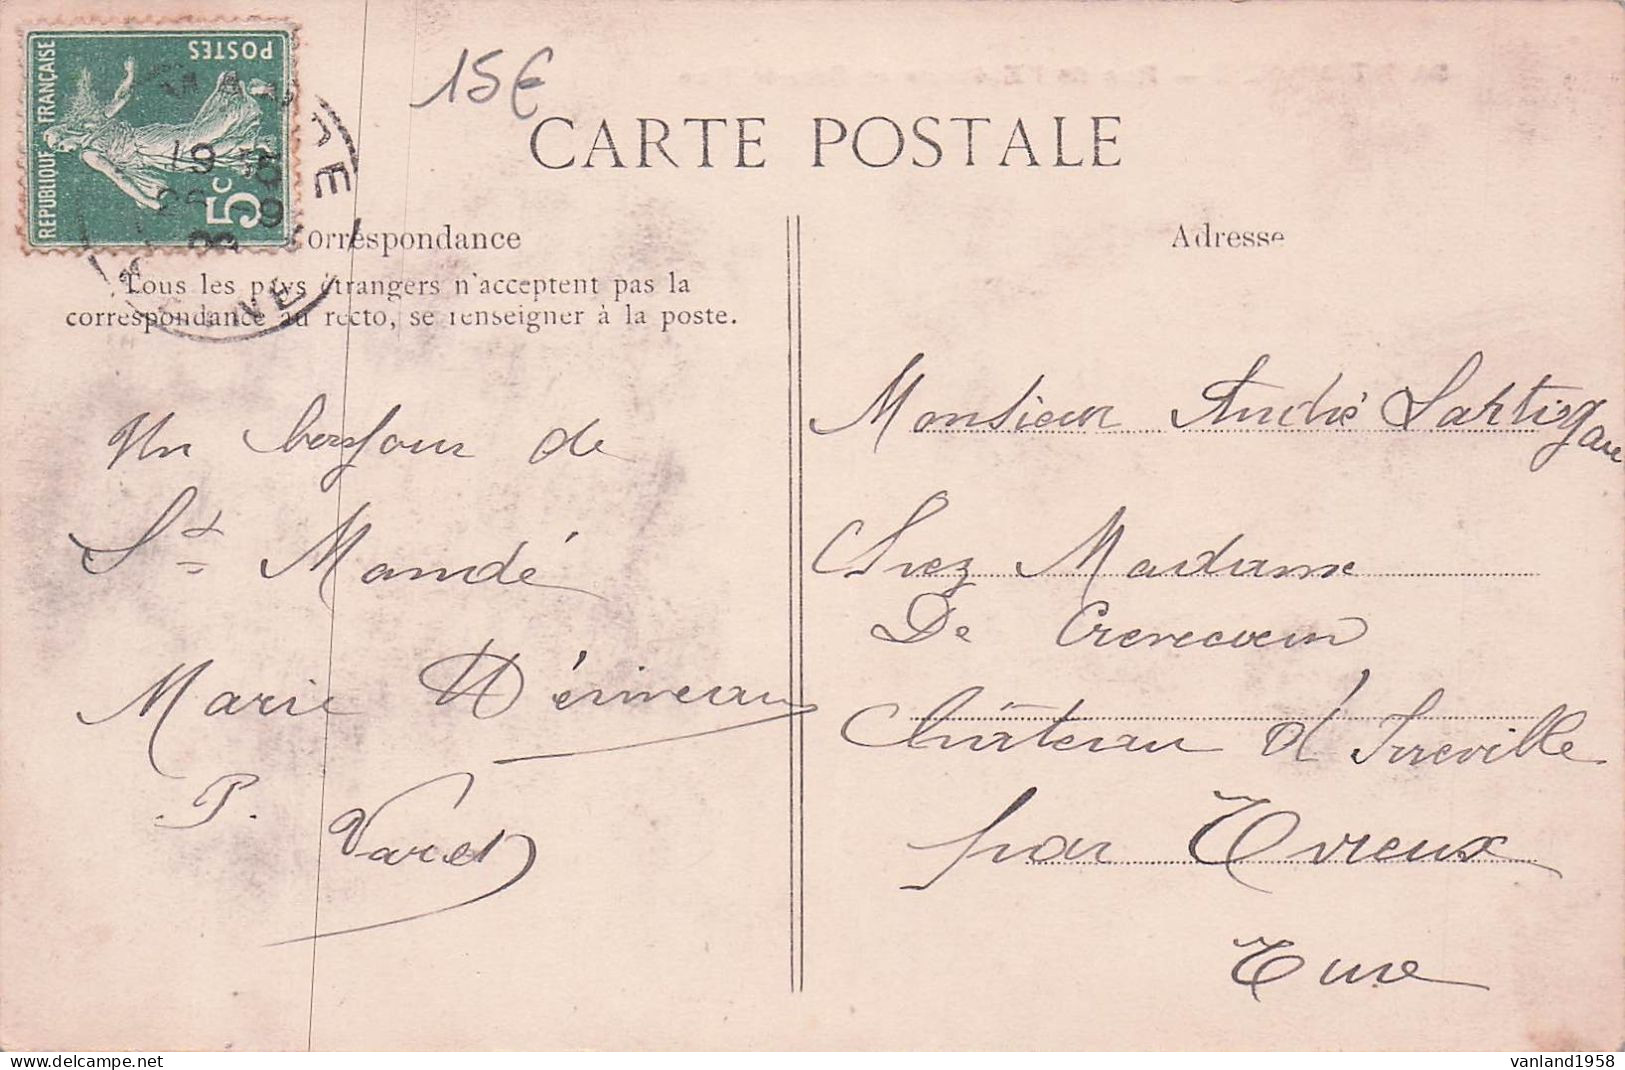 15€
REPUBLIQUE FRANÇAISE
POSTES
5c
CARTE POSTALE
Correspondance
Tous les pays étrangers n'acceptent pas la
correspondance au recto, se renseigner à la poste.
Un bonjour de
St Mandé
Marie Mérineau
P. Varet
Adresse
Monsieur André Lartizau
Chez Madame
De Crevecoeur
Château d'Irreville
par Evreux
Eure
vanland1958